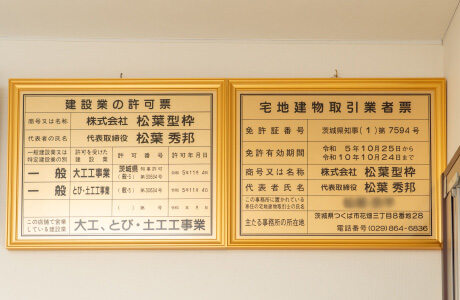 建設業の許可票
商号又は名称 株式会社 松葉型枠
代表者の氏名 代表取締役 松葉 秀邦
一般建設業又は特定建設業の別 許可を受けた建設業 許可番号 許可年月日
一般 大工工事業 茨城県知事許可 (般-5) 第 号 令和 5年11月 4日
一般 とび・土工工事業 (般-5) 第 号 令和 5年11月 4日
( ) 第 号 年 月 日
この店舗で営業している建設業 大工、とび・土工工事業
宅地建物取引業者票
免許証番号 茨城県知事(1)第7594号
免許有効期間 令和 5年10月25日から
令和10年10月24日まで
商号又は名称 株式会社 松葉型枠
代表者氏名 代表取締役 松葉 秀邦
この事務所に置かれている
専任の宅地建物取引士の氏名
主たる事務所の所在地 茨城県つくば市花畑三丁目8番地28
電話番号(029)864-6836